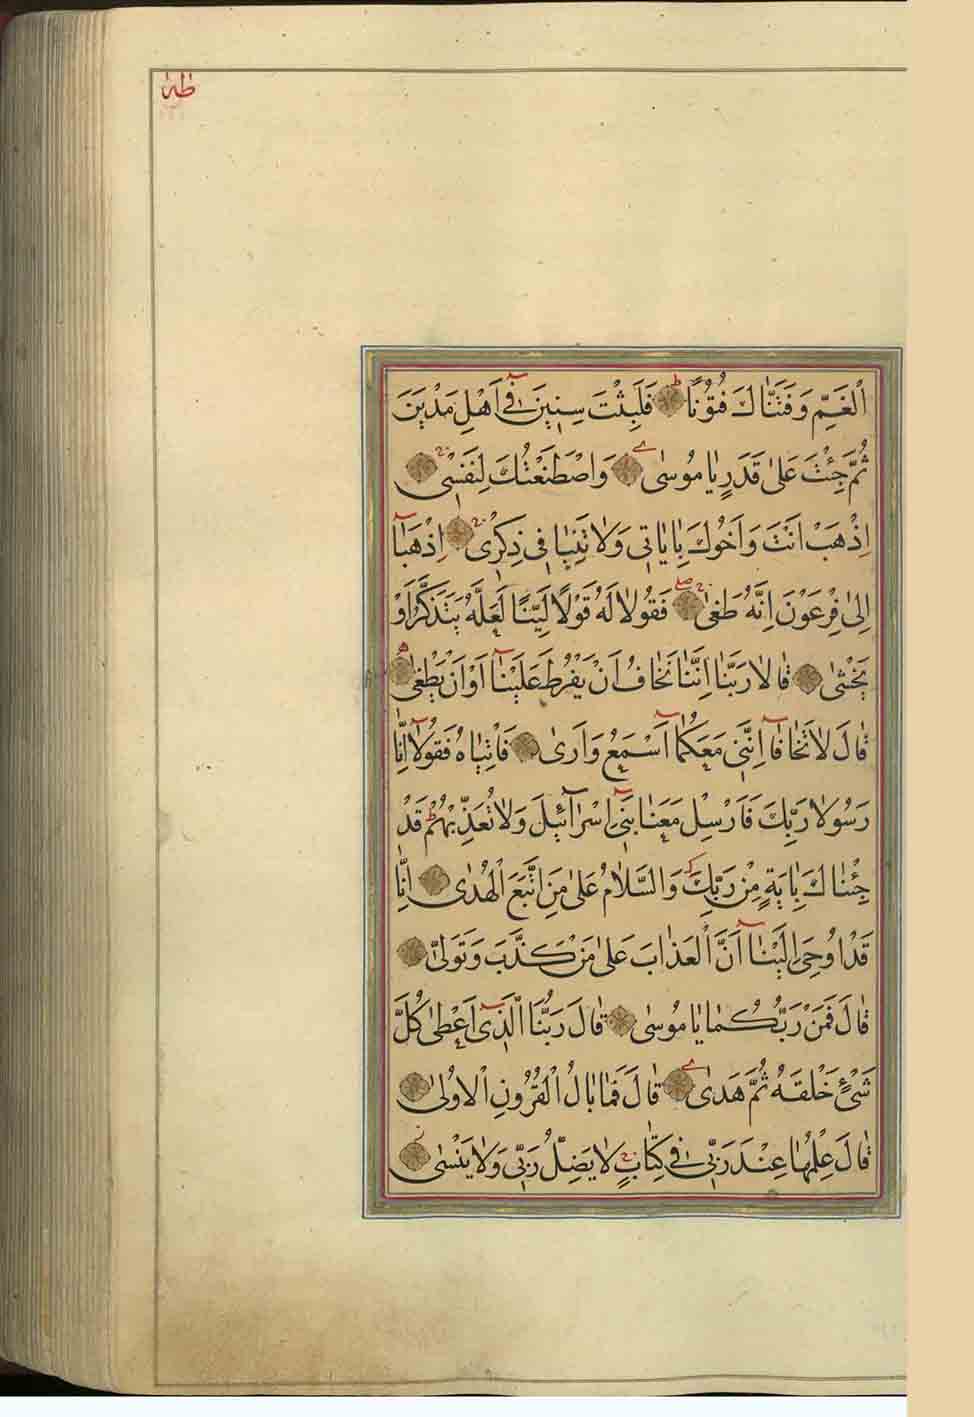 طٰهٰ
اَلْغَمِّ وَفَتَنَّاكَ فُتُوْنًا ط فَلَبِثْتَ سِنِينَ فٖٓى اَهْلِ مَدْيَنَ
ثُمَّ جِئْتَ عَلٰى قَدَرٍ يَا مُوسٰى وَاصْطَنَعْتُكَ لِنَفْسٖى
اِذْهَبْ اَنْتَ وَاَخُوكَ بِاٰيَاتٖى وَلَا تَنِيَا فٖى ذِكْرٖى اِذْهَبَٓا
اِلٰى فِرْعَوْنَ اِنَّهُ طَغٰى صلے فَقُولَا لَهُ قَوْلًا لَيِّنًا لَعَلَّهُ يَتَذَكَّرُ اَوْ
يَخْشٰى قَالَا رَبَّنَا اِنَّنَا نَخَافُ اَنْ يَفْرُطَ عَلَيْنَٓا اَوْ اَنْ يَطْغٰى
قَالَ لَا تَخَافَٓا اِنَّنٖى مَعَكُمَٓا اَسْمَعُ وَاَرٰى فَاْتِيَاهُ فَقُولَٓا اِنَّا
رَسُولَا رَبِّكَ فَاَرْسِلْ مَعَنَا بَنٖٓى اِسْرَٓائٖلَ وَلَا تُعَذِّبْهُمْ ط قَدْ
جِئْنَاكَ بِاٰيَةٍ مِنْ رَبِّكَ وَالسَّلَامُ عَلٰى مَنِ اتَّبَعَ الْهُدٰى اِنَّا
قَدْ اُوحِىَ اِلَيْنَٓا اَنَّ الْعَذَابَ عَلٰى مَنْ كَذَّبَ وَتَوَلّٰى
قَالَ فَمَنْ رَبُّكُمَا يَا مُوسٰى قَالَ رَبُّنَا الَّذٖٓى اَعْطٰى كُلَّ
شَىْءٍ خَلْقَهُ ثُمَّ هَدٰى قَالَ فَمَا بَالُ الْقُرُونِ الْاُولٰى
قَالَ عِلْمُهَا عِنْدَ رَبّٖى فٖى كِتَابٍ لَا يَضِلُّ رَبّٖى وَلَا يَنْسٰى